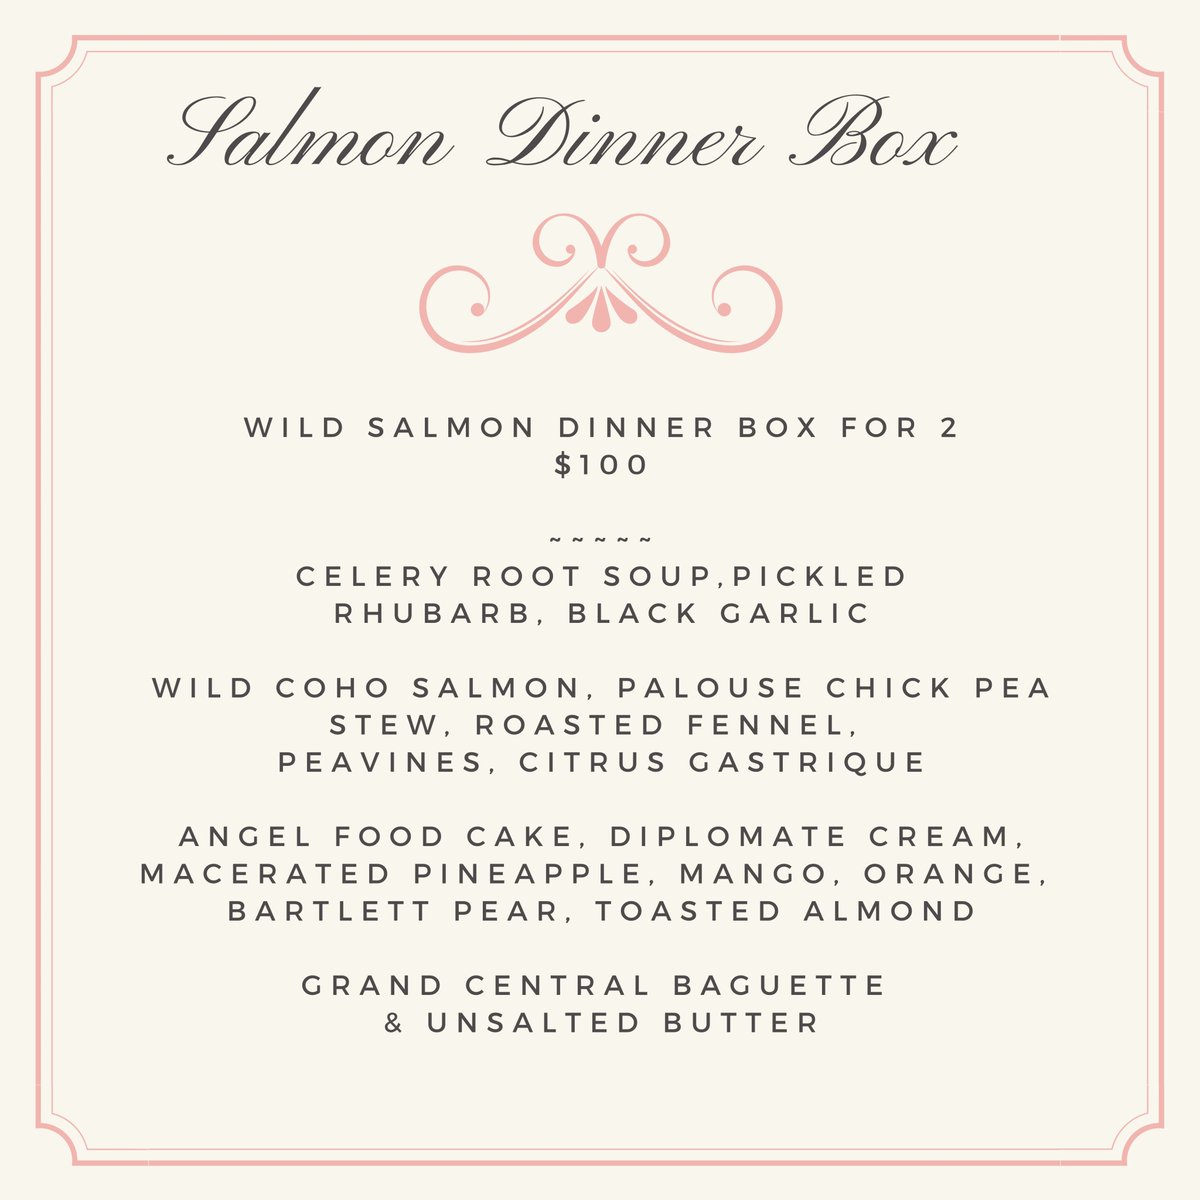 Salmon Dinner Box
WILD SALMON DINNER BOX FOR 2
$100
~~~~~
CELERY ROOT SOUP,PICKLED
RHUBARB, BLACK GARLIC
WILD COHO SALMON, PALOUSE CHICK PEA
STEW, ROASTED FENNEL,
PEAVINES, CITRUS GASTRIQUE
ANGEL FOOD CAKE, DIPLOMATE CREAM,
MACERATED PINEAPPLE, MANGO, ORANGE,
BARTLETT PEAR, TOASTED ALMOND
GRAND CENTRAL BAGUETTE
& UNSALTED BUTTER